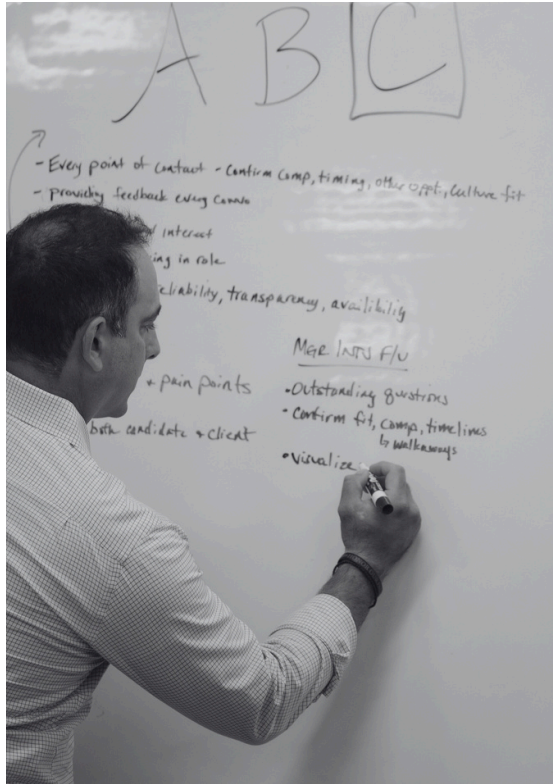 A B C
- Every point of contact - Confirm comp, timing, other oppt, Culture fit
- providing feedback every
interest
in role
transparency, availibility
+ pain points
both candidate + client
MGR INTV F/U
• Outstanding questions
• Confirm fit, comp, timelines
↳ walkaways
• Visualize